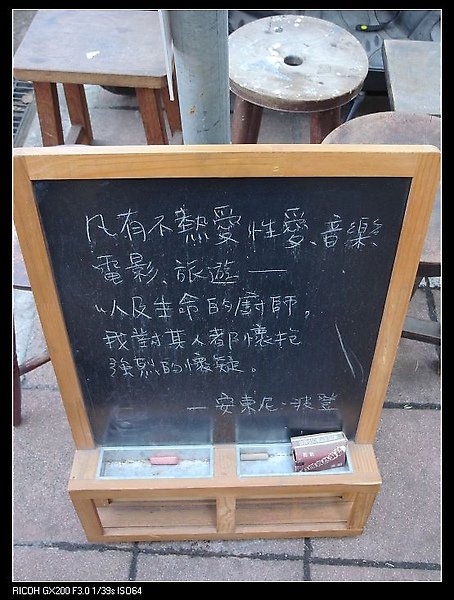 凡有不熱愛性愛、音樂
電影、旅遊——
以及生命的廚師。
我對其人都懷抱
強烈的懷疑。
—安東尼·波登
RICOH GX200 F3.0 1/39s ISO64